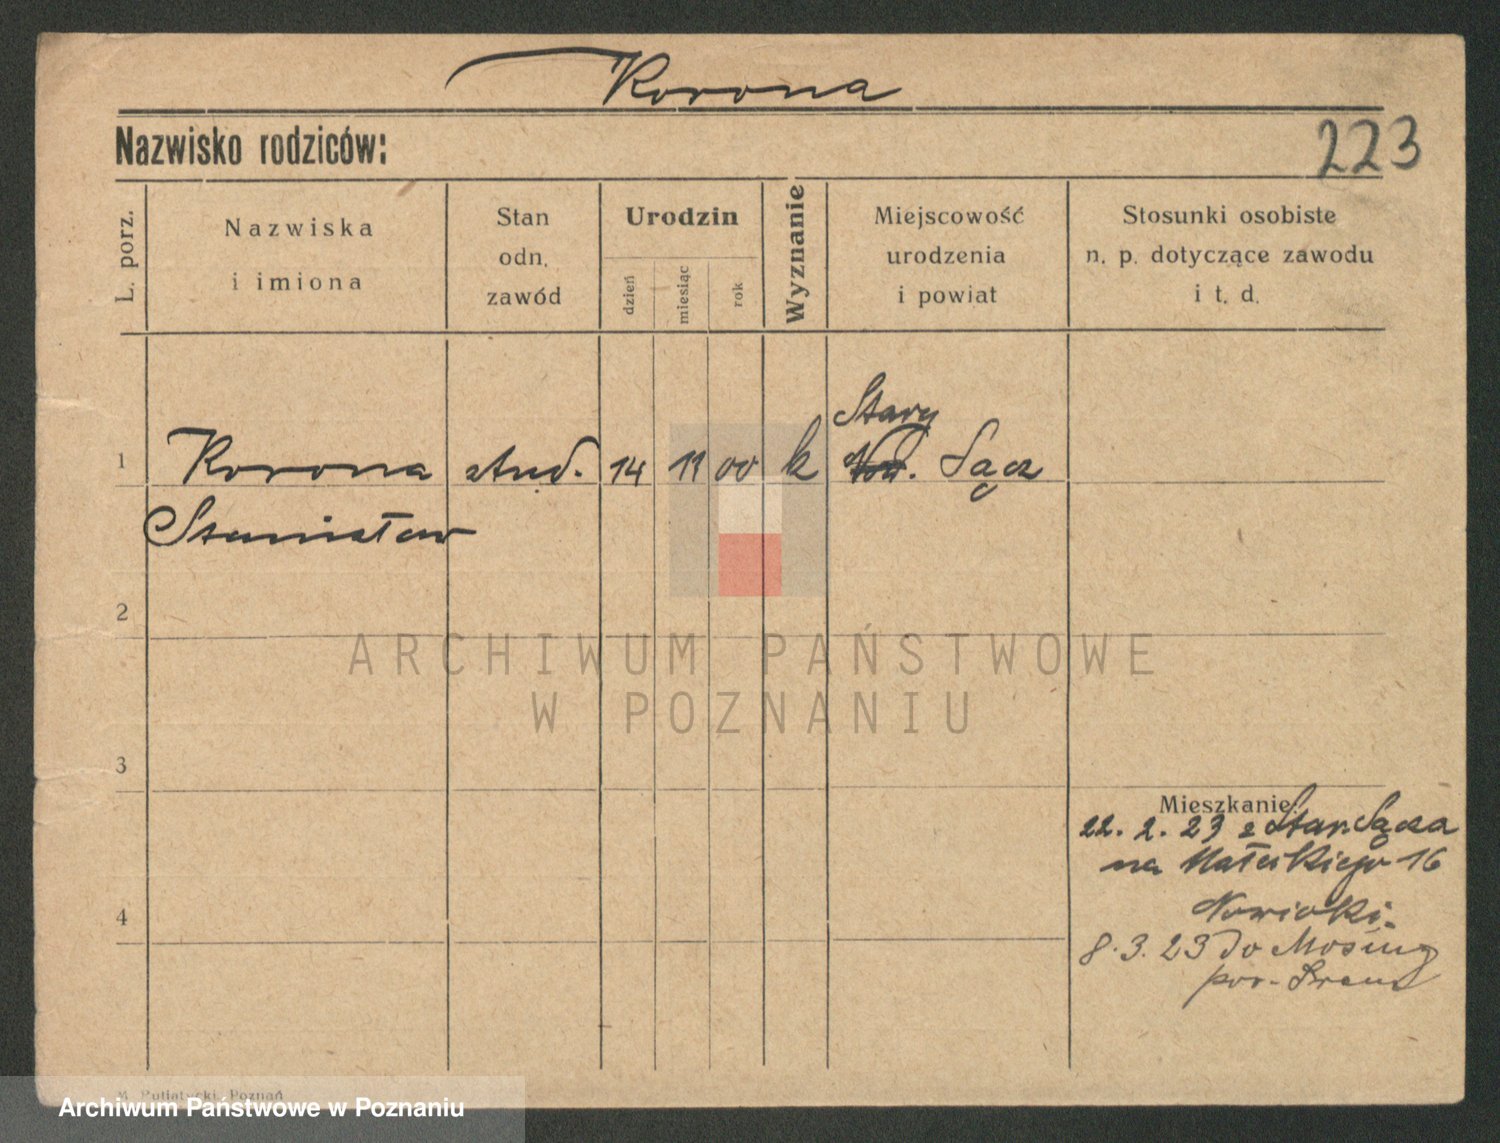 Korona
Nazwisko rodziców:
223
L. porz.
Nazwiska
i imiona
Stan
odn.
zawód
Urodzin
dzień
miesiąc
rok
Wyznanie
Miejscowość
urodzenia
i powiat
Stosunki osobiste
n. p. dotyczące zawodu
i t. d.
Stary
1 Korona stud. 14 11 00 k Sącz
Stanisław
2
3
4
Mieszkanie:
22. 2. 23 z Star. Sącza
na Małeckiego 16
Nowicki.
8. 3. 23 do Mosiny
pow. Śrem
M. Putiatycki, Poznań
ARCHIWUM PAŃSTWOWE
W POZNANIU
Archiwum Państwowe w Poznaniu